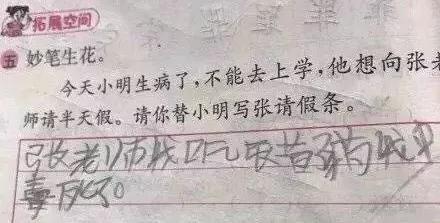 拓展空间
五 妙笔生花。
今天小明生病了,不能去上学,他想向张老
师请半天假。请你替小明写张请假条。
张老师我吃
毒死了。